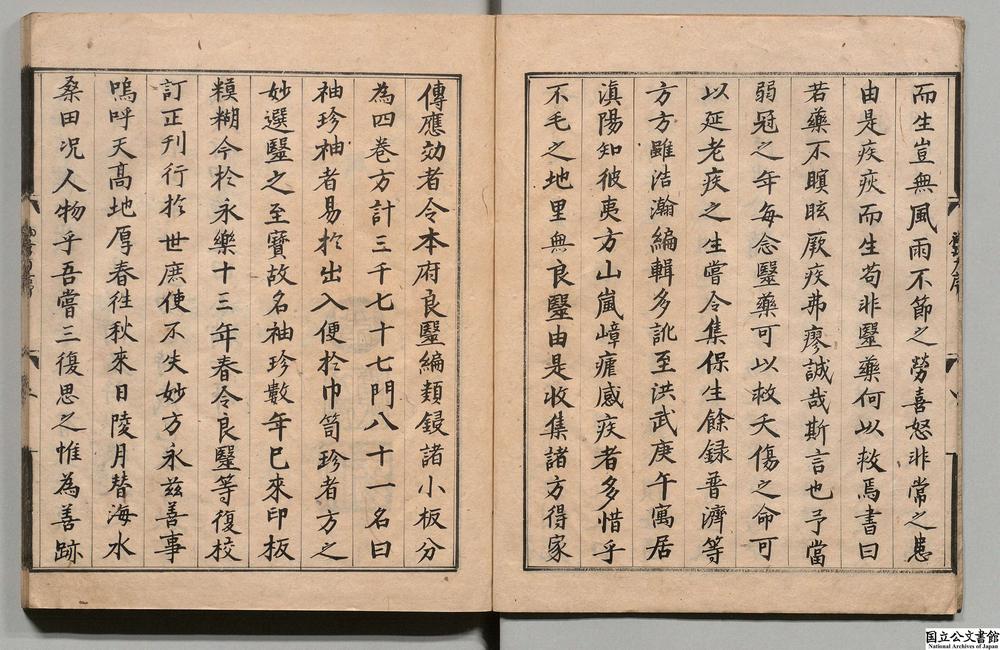 而生豈無風雨不節之勞喜怒非常之患
由是疾疢而生苟非毉藥何以救焉書曰
若藥不瞑眩厥疾弗瘳誠哉斯言也予當
弱冠之年每念毉藥可以救夭傷之命可
以延老疾之生嘗令集保生餘録普濟等
方方雖浩瀚編輯多訛至洪武庚午寓居
滇陽知彼夷方山嵐嶂瘧感疾者多惜乎
不毛之地里無良毉由是收集諸方得家
傳應効者令本府良毉編類鋟諸小板分
為四卷方計三千七十七門八十一名曰
袖珍袖者易於出入便於巾笥珍者方之
妙選毉之至寶故名袖珍數年已來印板
糢糊今於永樂十三年春令良毉等復校
訂正刊行於世庶使不失妙方永兹善事
嗚呼天髙地厚春徃秋來日陵月替海水
桑田况人物乎吾嘗三復思之惟為善跡
国立公文書館
National Archives of Japan